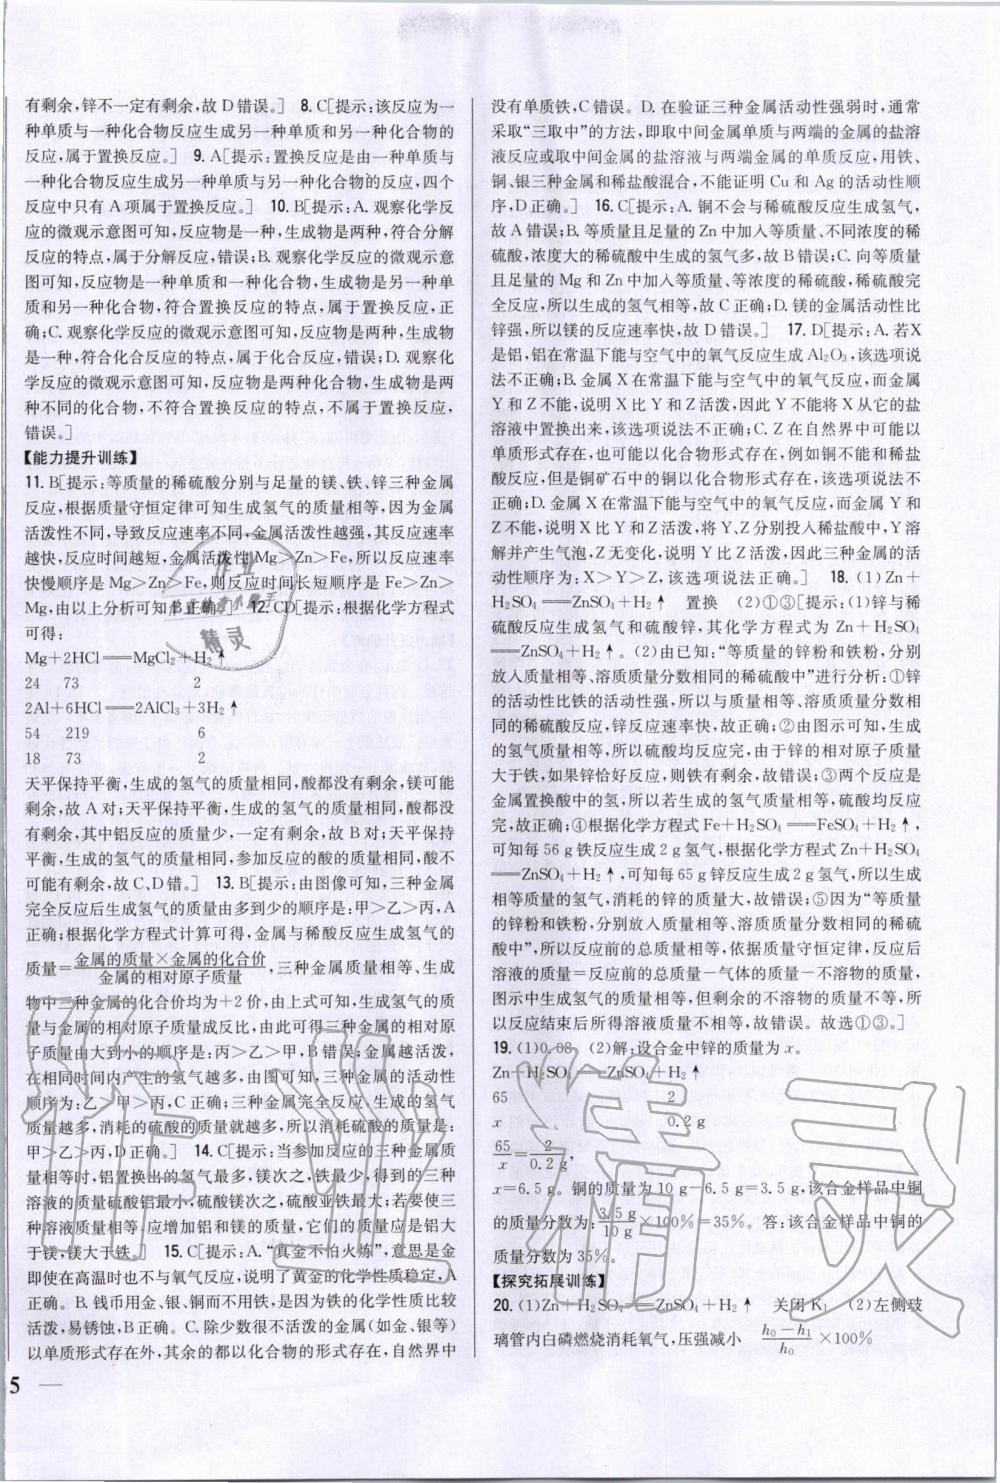 有剩余,锌不一定有剩余,故D错误。] 8. C[提示:该反应为一
种单质与一种化合物反应生成另一种单质和另一种化合物的
反应,属于置换反应。] 9. A[提示:置换反应是由一种单质与
一种化合物反应生成另一种单质与另一种化合物的反应,四个
反应中只有A项属于置换反应。] 10. B[提示:A. 观察化学反
应的微观示意图可知,反应物是一种,生成物是两种,符合分解
反应的特点,属于分解反应,错误;B. 观察化学反应的微观示意
图可知,反应物是一种单质和一种化合物,生成物是另一种单
质和另一种化合物,符合置换反应的特点,属于置换反应,正
确;C. 观察化学反应的微观示意图可知,反应物是两种,生成物
是一种,符合化合反应的特点,属于化合反应,错误;D. 观察化
学反应的微观示意图可知,反应物是两种化合物,生成物是两
种不同的化合物,不符合置换反应的特点,不属于置换反应,
错误。]
【能力提升训练】
11. B[提示:等质量的稀硫酸分别与足量的镁、铁、锌三种金属
反应,根据质量守恒定律可知生成氢气的质量相等,因为金属
活泼性不同,导致反应速率不同,金属活泼性越强,其反应速率
越快,反应时间越短,金属活泼性 Mg>Zn>Fe,所以反应速率
快慢顺序是 Mg>Zn>Fe,则反应时间长短顺序是 Fe>Zn>
Mg,由以上分析可知B正确。] 12. CD[提示:根据化学方程式
可得:
Mg+2HCl══MgCl₂+H₂↑
24 73 2
2Al+6HCl══2AlCl₃+3H₂↑
54 219 6
18 73 2
天平保持平衡,生成的氢气的质量相同,酸都没有剩余,镁可能
剩余,故A对;天平保持平衡,生成的氢气的质量相同,酸都没
有剩余,其中铝反应的质量少,一定有剩余,故B对;天平保持
平衡,生成的氢气的质量相同,参加反应的酸的质量相同,酸不
可能有剩余,故C、D错。] 13. B[提示:由图像可知,三种金属
完全反应后生成氢气的质量由多到少的顺序是:甲>乙>丙,A
正确;根据化学方程式计算可得,金属与稀酸反应生成氢气的
质量=金属的质量×金属的化合价/金属的相对原子质量,三种金属质量相等、生成
物中三种金属的化合价均为+2价,由上式可知,生成氢气的质
量与金属的相对原子质量成反比,由此可得三种金属的相对原
子质量由大到小的顺序是:丙>乙>甲,B错误;金属越活泼,
在相同时间内产生的氢气越多,由图可知,三种金属的活动性
顺序为:乙>甲>丙,C正确;三种金属完全反应,生成的氢气
质量越多,消耗的硫酸的质量就越多,所以消耗硫酸的质量是:
甲>乙>丙,D正确。] 14. C[提示:当参加反应的三种金属质
量相等时,铝置换出的氢气最多,镁次之,铁最少,得到的三种
溶液的质量硫酸铝最小,硫酸镁次之,硫酸亚铁最大;若要使三
种溶液质量相等,应增加铝和镁的质量,它们的质量应是铝大
于镁,镁大于铁。] 15. C[提示:A.“真金不怕火炼”,意思是金
即使在高温时也不与氧气反应,说明了黄金的化学性质稳定,A
正确。B. 钱币用金、银、铜而不用铁,是因为铁的化学性质比较
活泼,易锈蚀,B正确。C. 除少数很不活泼的金属(如金、银等)
以单质形式存在外,其余的都以化合物的形式存在,自然界中
5 —
没有单质铁,C错误。D. 在验证三种金属活动性强弱时,通常
采取“三取中”的方法,即取中间金属单质与两端的金属的盐溶
液反应或取中间金属的盐溶液与两端金属的单质反应,用铁、
铜、银三种金属和稀盐酸混合,不能证明Cu和Ag的活动性顺
序,D正确。] 16. C[提示:A. 铜不会与稀硫酸反应生成氢气,
故A错误;B. 等质量且足量的Zn中加入等质量、不同浓度的稀
硫酸,浓度大的稀硫酸中生成的氢气多,故B错误;C. 向等质量
且足量的Mg和Zn中加入等质量、等浓度的稀硫酸,稀硫酸完
全反应,所以生成的氢气相等,故C正确;D. 镁的金属活动性比
锌强,所以镁的反应速率快,故D错误。] 17. D[提示:A. 若X
是铝,铝在常温下能与空气中的氧气反应生成Al₂O₃,该选项说
法不正确;B. 金属X在常温下能与空气中的氧气反应,而金属
Y和Z不能,说明X比Y和Z活泼,因此Y不能将X从它的盐
溶液中置换出来,该选项说法不正确;C. Z在自然界中可能以
单质形式存在,也可能以化合物形式存在,例如铜不能和稀盐
酸反应,但是铜矿石中的铜以化合物形式存在,该选项说法不
正确;D. 金属X在常温下能与空气中的氧气反应,而金属Y和
Z不能,说明X比Y和Z活泼,将Y、Z分别投入稀盐酸中,Y溶
解并产生气泡,Z无变化,说明Y比Z活泼,因此三种金属的活
动性顺序为:X>Y>Z,该选项说法正确。] 18. (1)Zn+
H₂SO₄══ZnSO₄+H₂↑ 置换 (2)①③[提示:(1)锌与稀
硫酸反应生成氢气和硫酸锌,其化学方程式为Zn+H₂SO₄
══ZnSO₄+H₂↑。(2)由已知:“等质量的锌粉和铁粉,分别
放入质量相等、溶质质量分数相同的稀硫酸中”进行分析:①锌
的活动性比铁的活动性强,所以与质量相等、溶质质量分数相
同的稀硫酸反应,锌反应速率快,故正确;②由图示可知,生成
的氢气质量相等,所以硫酸均反应完,由于锌的相对原子质量
大于铁,如果锌恰好反应,则铁有剩余,故错误;③两个反应是
金属置换酸中的氢,所以若生成的氢气质量相等,硫酸均反应
完,故正确;④根据化学方程式Fe+H₂SO₄══FeSO₄+H₂↑,
可知每56 g铁反应生成2 g氢气,根据化学方程式Zn+H₂SO₄
══ZnSO₄+H₂↑,可知每65 g锌反应生成2 g氢气,所以生成
相等质量的氢气,消耗的锌的质量大,故错误;⑤因为“等质量
的锌粉和铁粉,分别放入质量相等、溶质质量分数相同的稀硫
酸中”,所以反应前的总质量相等,依据质量守恒定律,反应后
溶液的质量=反应前的总质量-气体的质量-不溶物的质量,
图示中生成氢气的质量相等,但剩余的不溶物的质量不等,所
以反应结束后所得溶液质量不相等,故错误。故选①③。]
19. (1)0.08 (2)解:设合金中锌的质量为x。
Zn+H₂SO₄══ZnSO₄+H₂↑
65 2
x 0.2 g
65/x=2/0.2 g,
x=6.5 g。铜的质量为10 g-6.5 g=3.5 g,该合金样品中铜
的质量分数为:3.5 g/10 g×100%=35%。答:该合金样品中铜的
质量分数为35%。
【探究拓展训练】
20. (1)Zn+H₂SO₄══ZnSO₄+H₂↑ 关闭K₁ (2)左侧玻
璃管内白磷燃烧消耗氧气,压强减小 h₀-h₁/h₀×100%
作业
精灵
作业精灵